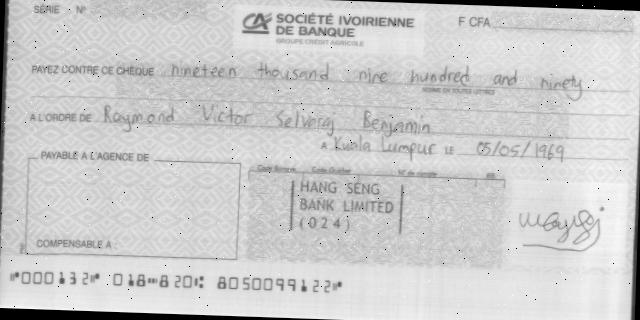 SÉRIE : N°
CA SOCIÉTÉ IVOIRIENNE
DE BANQUE
GROUPE CRÉDIT AGRICOLE
F CFA
PAYEZ CONTRE CE CHÈQUE nineteen thousand nine hundred and ninety
SOMME EN TOUTES LETTRES
A L'ORDRE DE Raymond Victor Selvaraj Benjamin
A Kuala Lumpur LE 05/05/1969
PAYABLE À L'AGENCE DE
Code Banque Code Guichet N° de compte
HANG SENG
BANK LIMITED
(024)
COMPENSABLE A :
⑈000132⑈ 018⑉820⑆ 805009912⑈